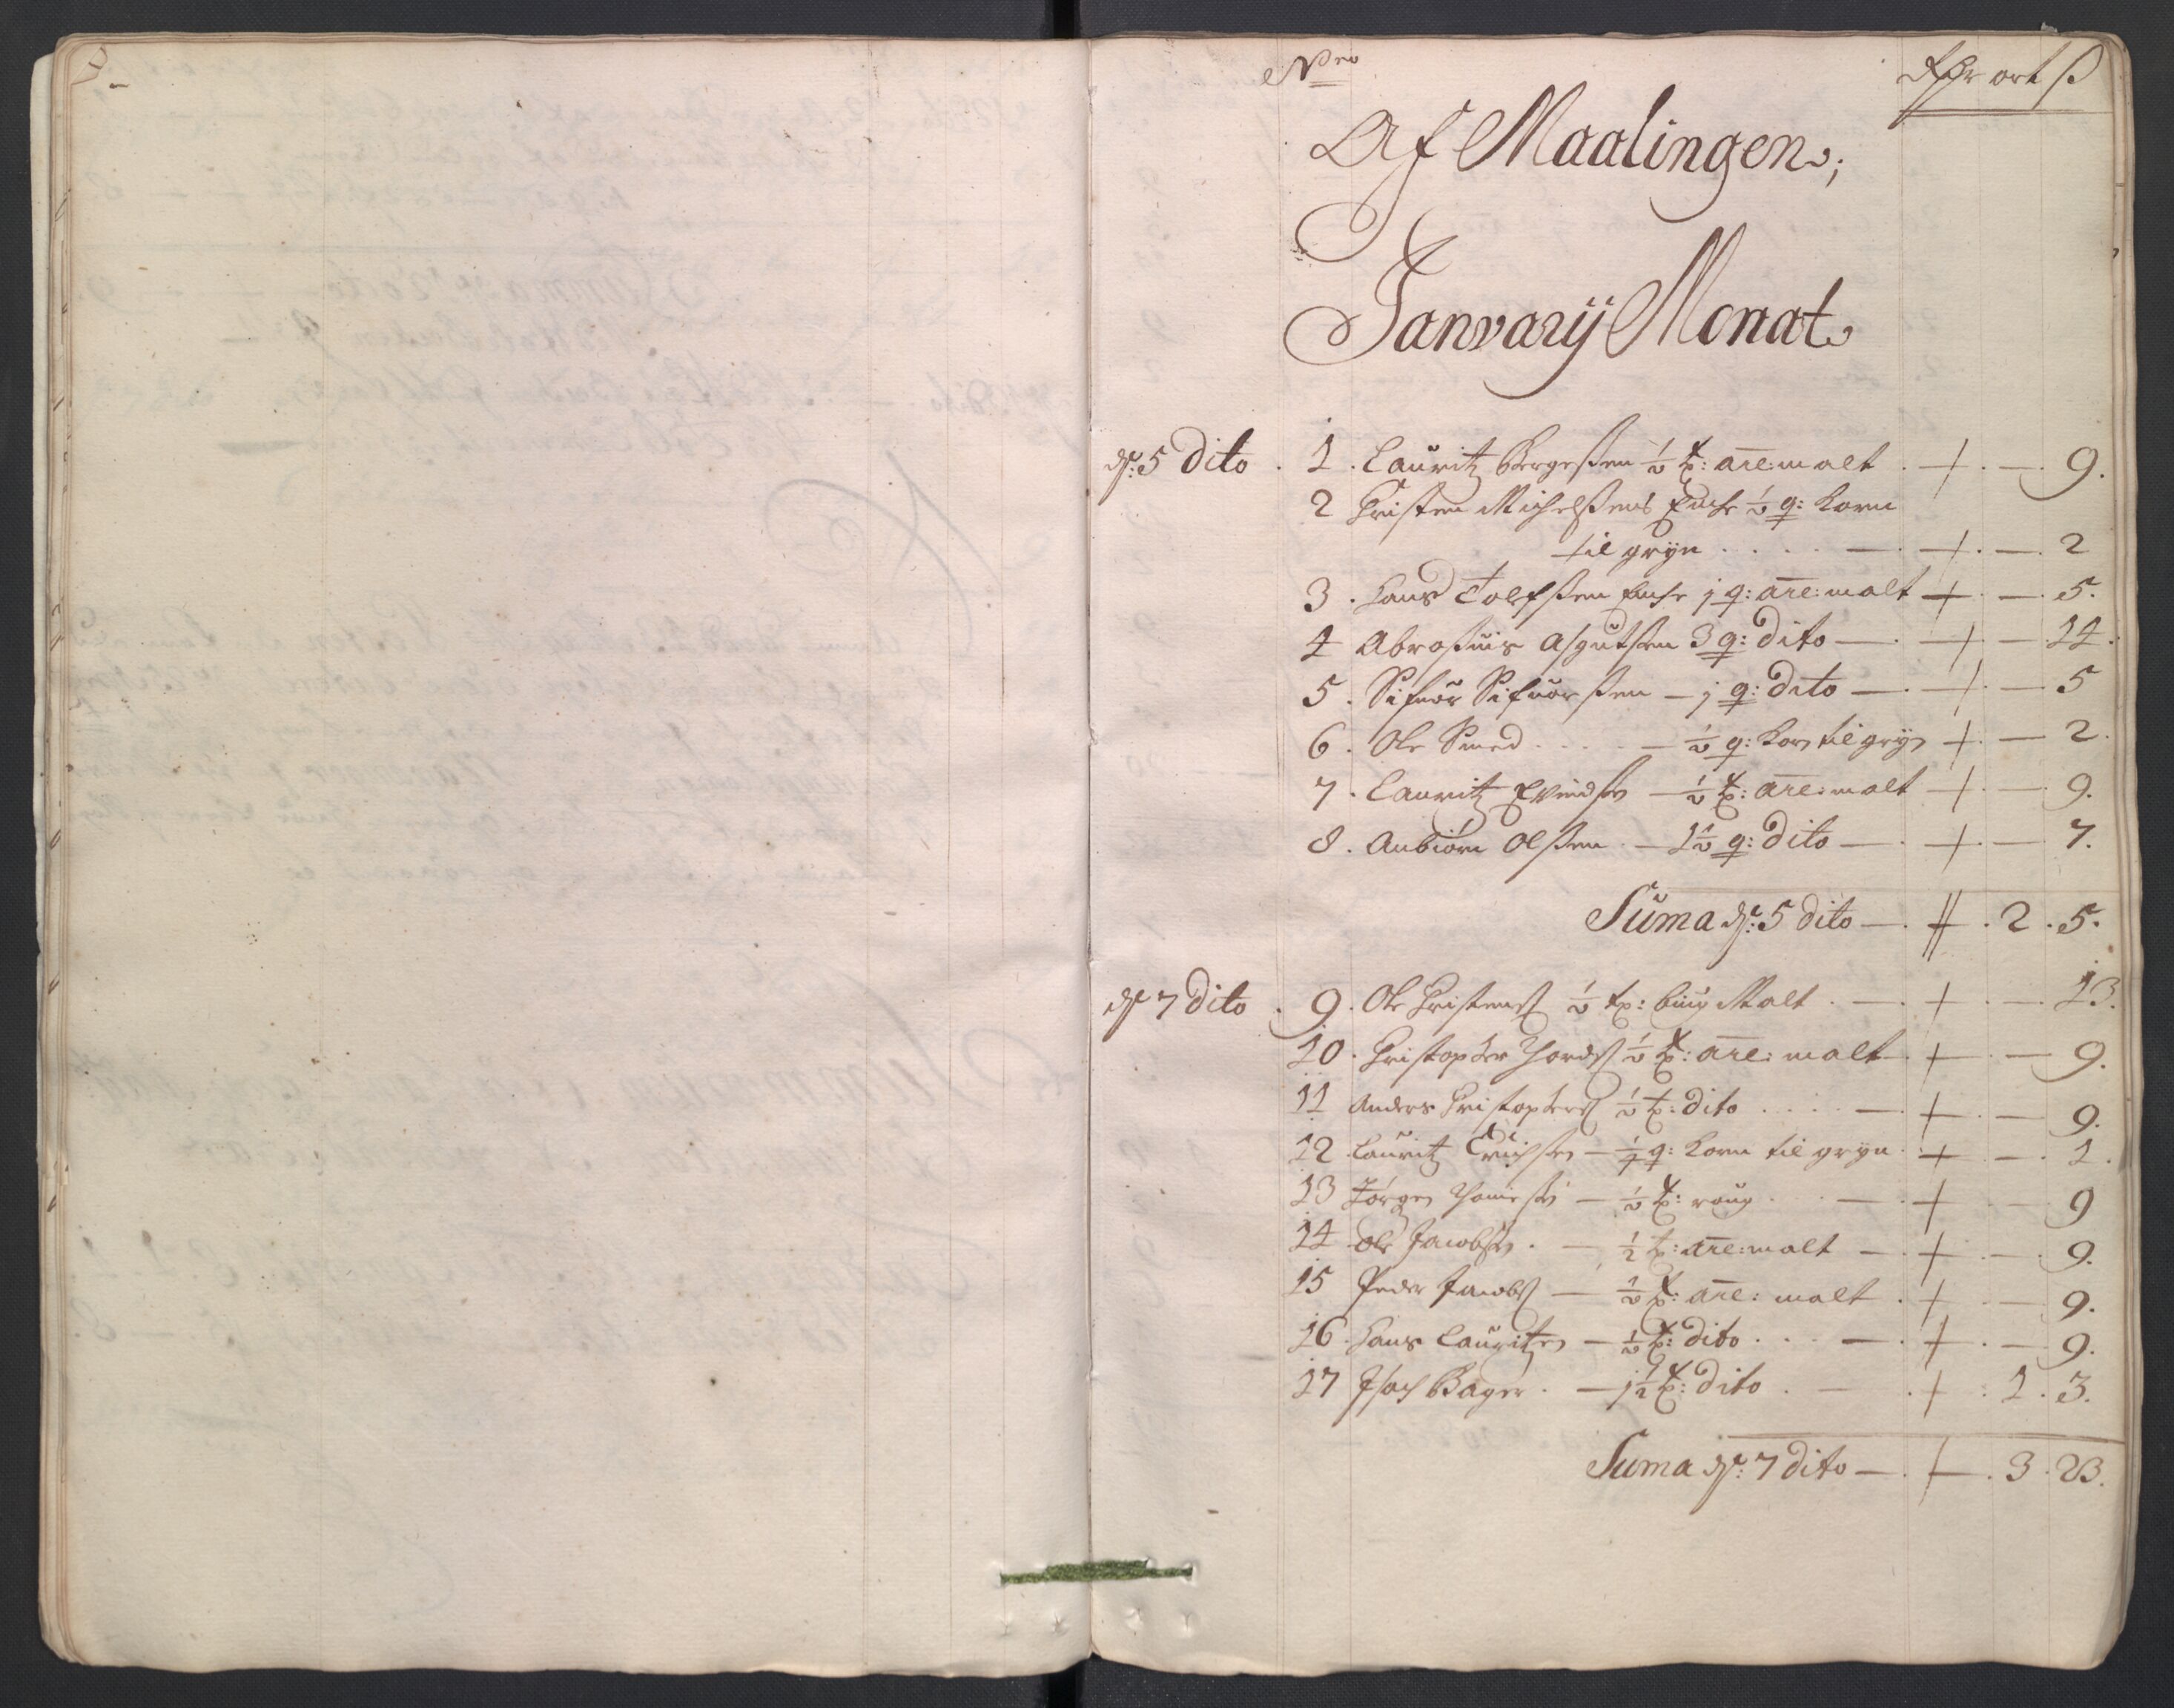 Nro Rdr ort ß
Af Maalingen;
Januarij Monat
d: 5 Dito . 1 . Lauritz Børgeßen ½ t: are: malt . + . — 9.
2 Christen Michelßens Enche ½ q: korn
til gryn . . . . — . + . — . 2
3 . Hans Tolfßen Enche j q: are: malt + . — . 5.
4 Abrosius Asgutsen 3 q: Dito — . + . — 14.
5 . Sifuor Sifuorßen — j q: Dito — . + . — 5
6 . Ole Smed . . . . — ½ q: korn til gryn + . — 2.
7 . Lauritz Evindsen — ½ t: are: malt + . — 9.
8 . Anbiørn Olßen . — 1½ q: Dito — . + . — 7.
Suma d: 5 dito — . # . 2 . 5.
d 7 Dito . 9 . Ole Christens ½ t: biug Malt . — . + . — 13.
10 . Christopher Thords ½ t: are: malt . + . — 9.
11 Anders Christophers ½ t: dito . . . . — . + . — 9.
12 . Lauritz Erichsen — ¼ q: korn til gryn . + . — . 1.
13 Jørgen — ½ t: roug . . — . + . — 9
14 Ole Jacobsen . — ½ t: are: malt — . + . — . 9.
15 Peder Jacobs — ½ t: are: malt . + . — 9.
16 . Hans Lauritzen — ½ t: dito . . . — . + . — 9.
17 Isach Bager . — j½ t: dito . — . + . 1 . 3.
Suma d: 7 dito — . + . 3 . 23.